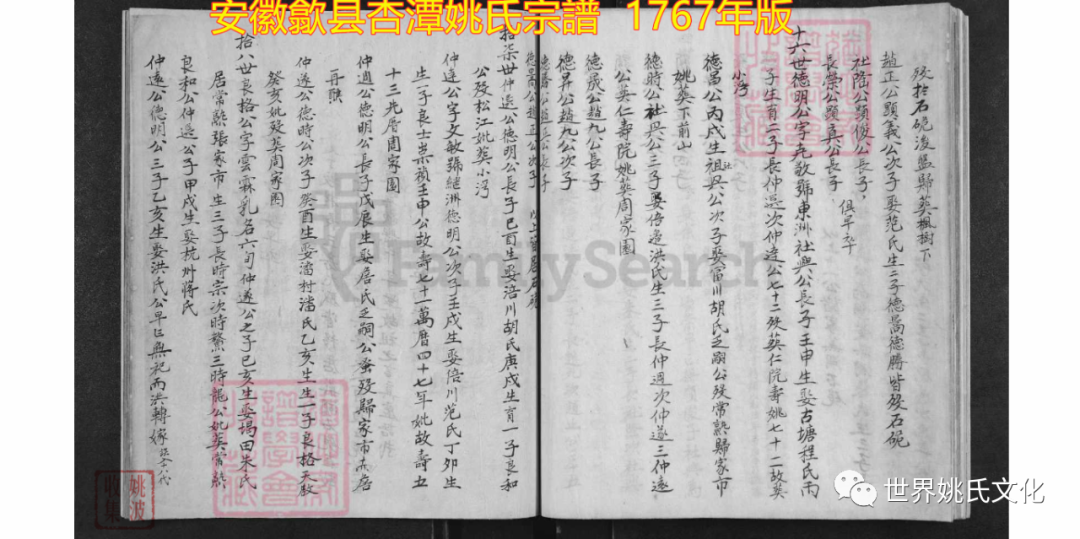 安徽歙县杏潭姚氏宗譜 1767年版
歿於石硊後盤歸葵楓樹下
益正公顯義公次子娶范氏生二子德暠德勝皆歿石硊
社隆公顯俊公長子
長榮公顯真公長子 俱早卒
十六世德明公字堯敬號東洲社興公長子壬申生娶古塘程氏丙
子生育二子長仲還次仲達公七十二歿葵仁院壽姚七十二故葵
小沟
德昌公丙戌生祖興公次子娶富川胡氏乏嗣公歿常熟歸家市
姚葵下前山
德時公社興公三子娶倍過洪氏生三子長仲週次仲遂三仲遠
公葵仁壽院姚葵周家園
德晟公趙九公長子
德昇公趙九公次子
德喬公趙正公次子
拾柒世仲還公德明公長子己酉生娶涪川胡氏庚戌生育一子良和
公歿松江妣葵小沟
仲達公字文敏號繼洲德明公次子壬戌生娶涪川范氏丁卯生
生一子良士崇禎壬申公故壽七十一萬曆四十七年妣故壽五
十三先厝周家園
仲週公德明公長子戊辰生娶詹氏乏嗣公蚤歿歸家市 詹
再醮
仲遂公德時公次子癸酉生娶潘村潘氏乙亥生生一子良格天啟
癸亥妣歿葵周家園
拾八世良格公字雲霖乳名六旬仲遂公之子己亥生娶瑒田朱氏
居常熟張家市生三子長時宗次時鰲三時龍公妣葵常熟
良和公仲還公子甲戌生娶杭州蔣氏
仲遂公德明公三子乙亥生娶洪氏公早亡無祀而洪轉嫁
FamilySearch
姚波
收集
世界姚氏文化